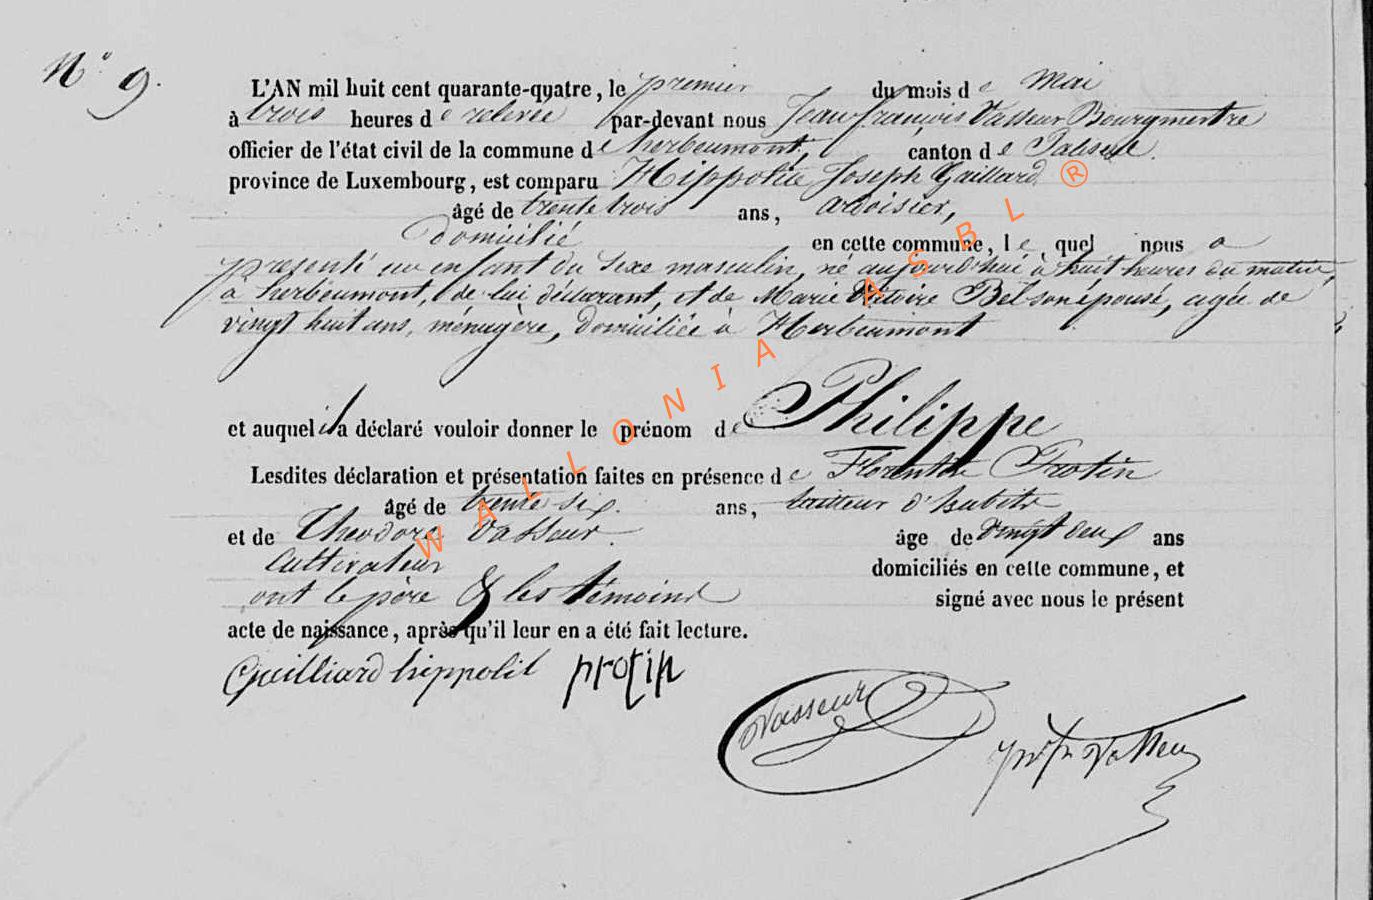 N° 9.
L'AN mil huit cent quarante-quatre, le premier du mois de Mai
à trois heures de relevée par-devant nous Jean françois Vasseur Bourgmestre
officier de l'état civil de la commune de herbeumont, canton de Paliseul.
province de Luxembourg, est comparu Hippolite Joseph Gaillard
âgé de trente trois ans, ardoisier,
domicilié en cette commune, le quel nous a
presenté un enfant du sexe masculin, né aujourd'hui à huit heures du matin,
à herbeumont, de lui déclarant, et de Marie Victoire Belson épouse, agée de
vingt huit ans, ménagère, domiciliée à Herbeumont
et auquel il a déclaré vouloir donner le prénom de Philippe
Lesdites déclaration et présentation faites en présence de Florentin Protin
âgé de trente six. ans, tailleur d'habits
et de Theodore Vasseur. âge de vingt deux ans
Cultivateur domiciliés en cette commune, et
ont le père & les témoins signé avec nous le présent
acte de naissance, après qu'il leur en a été fait lecture.
Guilliard hippolit protin
Vasseur
Vasseur
WALLONIA ASBL ®